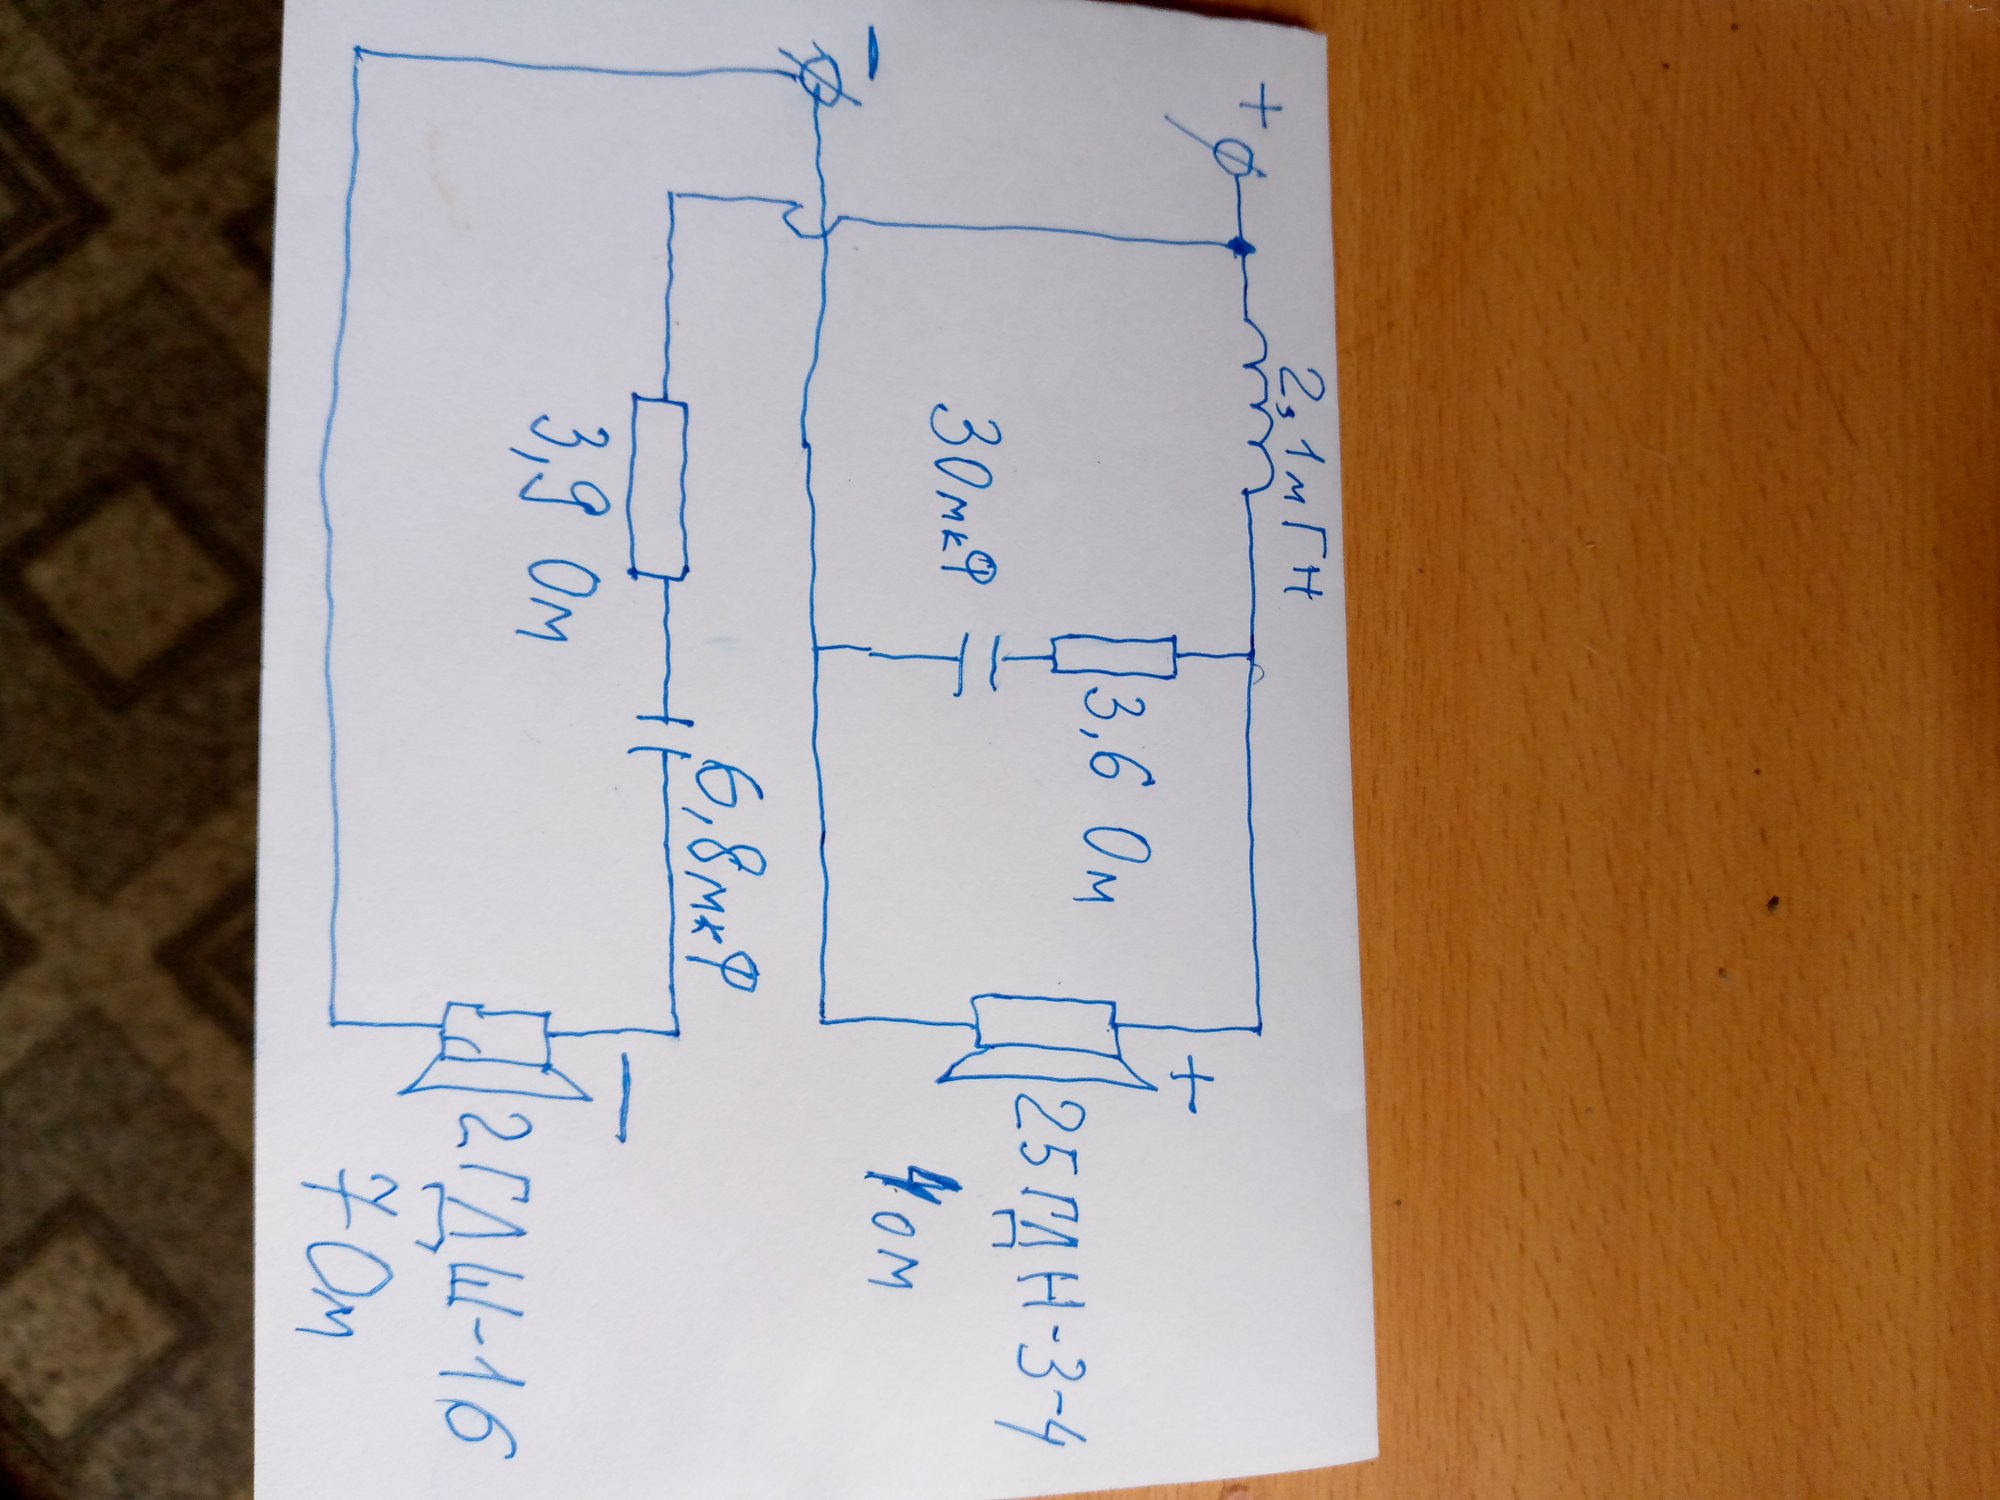 +
2,1мГн
3,6 Ом
30мкФ
+
25ГДН-3-4
4 Ом
-
6,8мкФ
3,9 Ом
-
2ГДШ-16
7 Ом